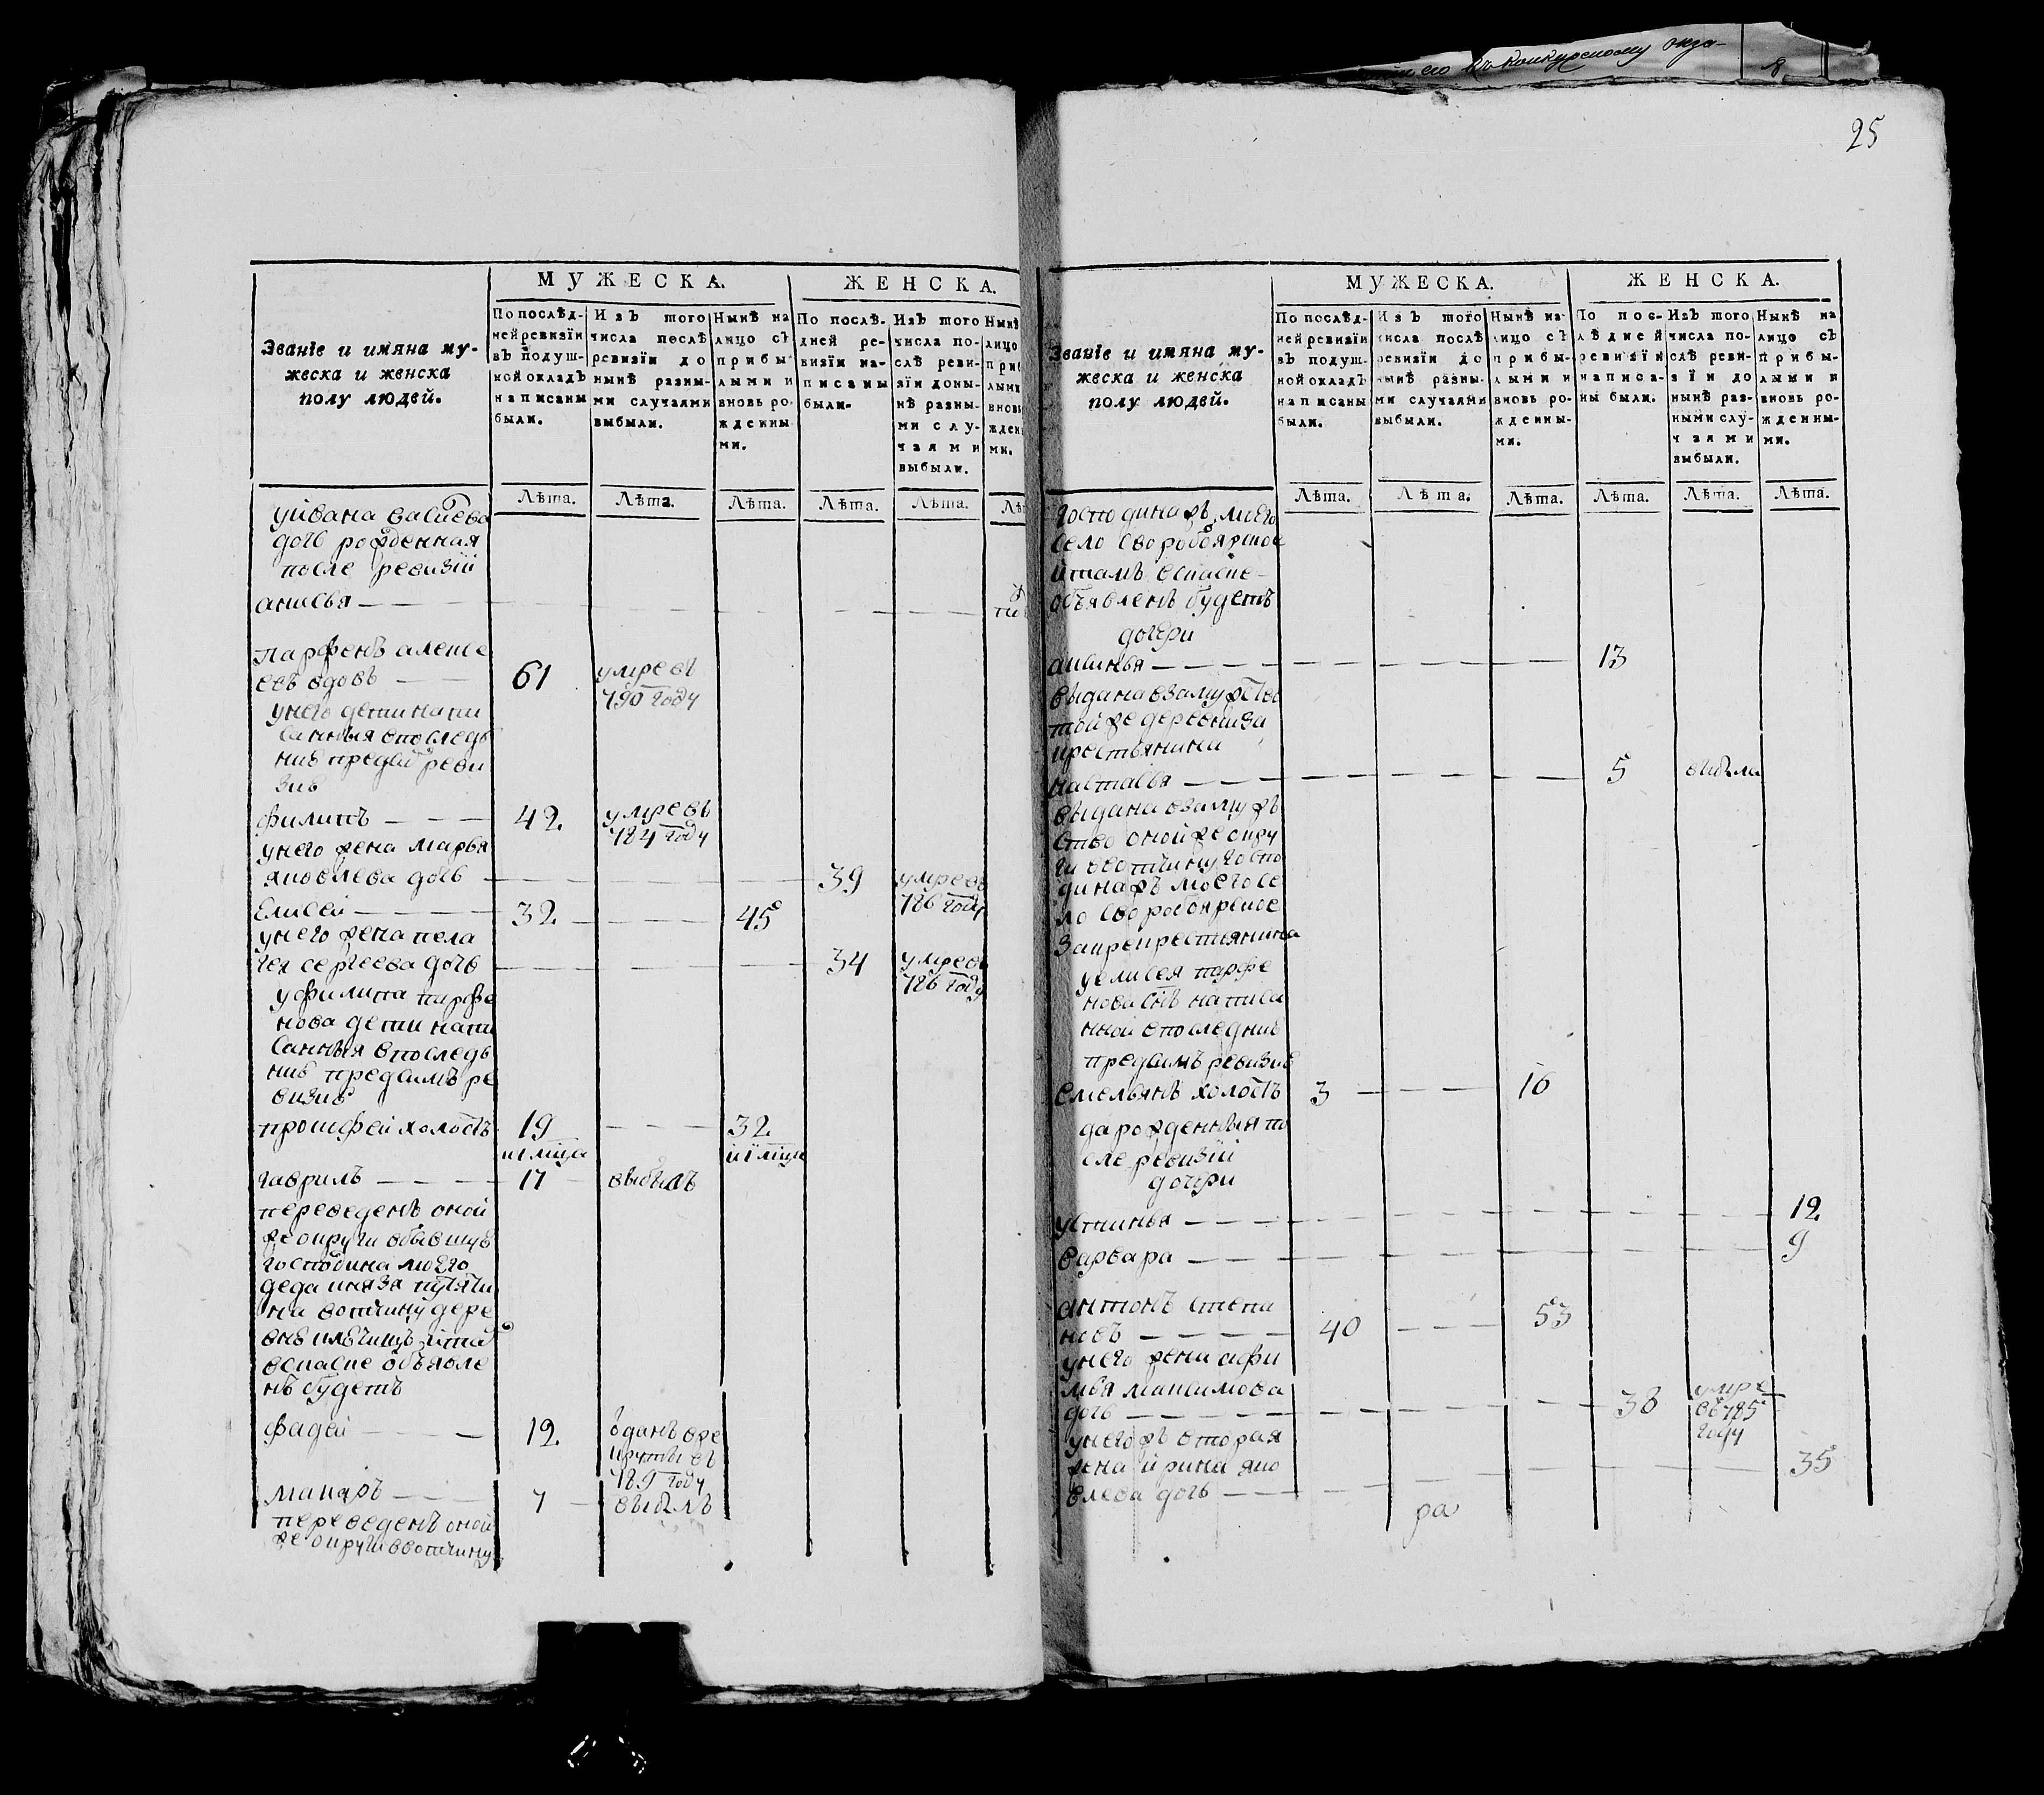 25
МУЖЕСКА.
ЖЕНСКА.
Званіе и имяна му-
жеска и женска
полу людей.
По послѣд-
ней ревизіи
въ подуш-
ной окладъ
написаны
были.
Изъ того
числа послѣ
ревизіи до
нынѣ разны-
ми случаями
выбыли.
Нынѣ на
лицо съ
прибы-
лыми и
вновь ро-
жденны
ми.
По послѣ-
дней ре-
визіи на-
писаны
были.
Изъ того
числа по-
слѣ реви-
зіи доны-
нѣ разны-
ми слу-
чаями
выбыли.
Нынѣ
лицо
при
лыми
вновь
жден
ми.
Лѣта.
Лѣта.
Лѣта.
Лѣта.
Лѣта.
уивана
дочь рожденная
после ревизіи
анисья
парфенъ алексе
евъ вдовъ 61 умре въ
790 году
унего дети напи
санныя впоследь
ней пред реви
зие
филипъ 42. умре въ
784 году
унего жена марья
яковлева дочь 39 умре въ
786 году
елисей 32 45
унего жена пела
гея сергеева дочь 34 умре въ
786 году
уфилипа парфе
нова дети напи
санныя впоследь
ней предсимъ ре
визие
трофей холостъ 19 32
гаврилъ 17 выбылъ
переведенъ оной
жеокруги вбывшуе
господина моего
деда князя
на вотчину дере
вне
вспаске объявле
нъ будетъ
фадей 12. оданъ вре
круты въ
789 году
макаръ 7 выбылъ
переведенъ оной
жеокруги ввотчину
МУЖЕСКА.
ЖЕНСКА.
Званіе и имяна му-
жеска и женска
полу людей.
По послѣд-
ней ревизіи
въ подуш-
ной окладъ
написаны
были.
Изъ того
числа послѣ
ревизіи до
нынѣ разны-
ми случаями
выбыли.
Нынѣ на-
лицо съ
прибы-
лыми и
вновь ро-
жденны-
ми.
По пос-
лѣдней
ревизіи
написа-
ны были.
Изъ того
числа по-
слѣ реви-
зіи до
нынѣ раз-
ными слу-
чаями
выбыли.
Нынѣ на
лицо съ
прибы-
лыми и
вновь ро-
жденны-
ми.
Лѣта.
Лѣта.
Лѣта.
Лѣта.
Лѣта.
Лѣта.
господина моего
село
итамъ вспаске
объявленъ будетъ
дочери
аксинья 13
выдана взамужство
тойже деревни за
крестьянина
настасья 5 выбыла
выдана взамужъ
ство оной же окру
ги ввотчину госпо
дина жъ моего се
ло
за крестьянина
уелисея парфе
нова сынъ написа
нной впоследние
предсимъ ревизие
емельянъ холостъ 3 16
да рожденныя по
сле ревизіи
дочери
устинья 12.
варвара 9
антонъ степа
новъ 40 53
унего жена афи
мья максимова
дочь 38 умре
въ 785
году
унегожъ вторая
жена ирина яко
влева дочь 35
ра